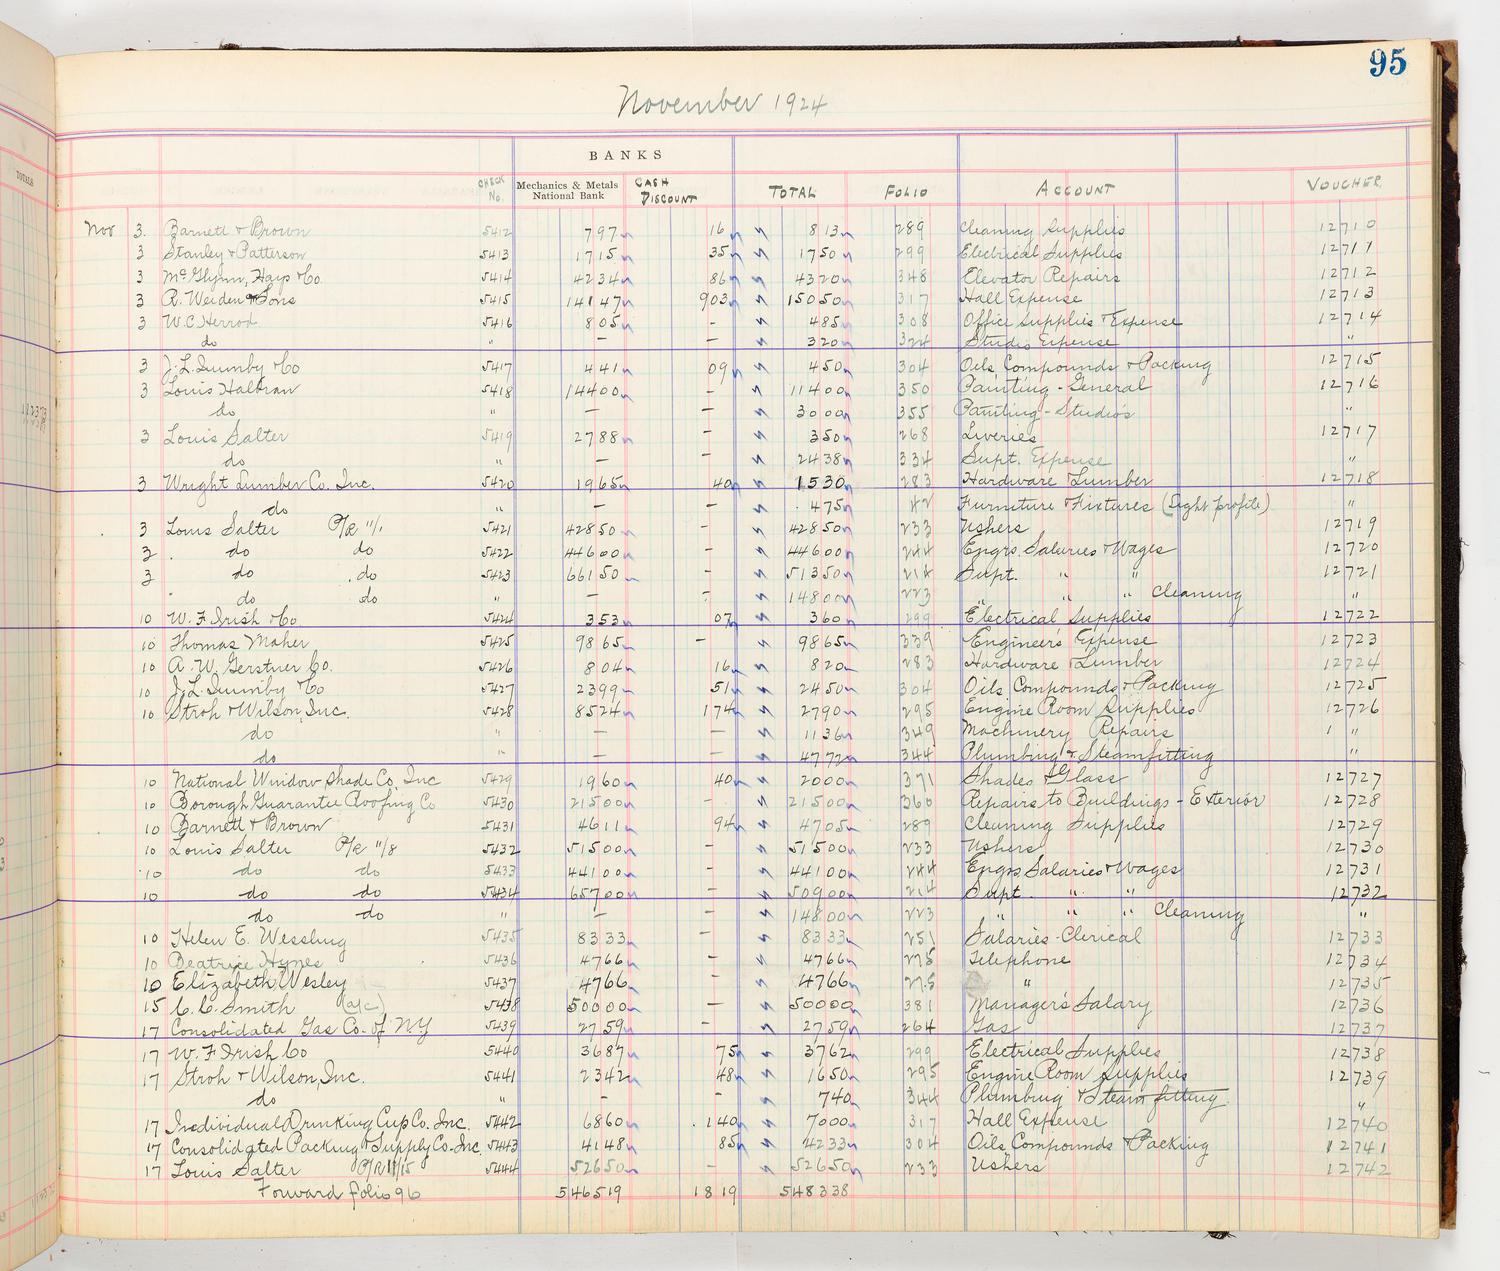 95
November 1924
TOTALS
BANKS
CHECK No. Mechanics & Metals National Bank CASH DISCOUNT TOTAL FOLIO ACCOUNT VOUCHER
Nov 3. Barnett & Brown 5412 797 16 813 289 Cleaning Supplies 12710
3 Stanley & Patterson 5413 1715 35 1750 299 Electrical Supplies 12711
3 McGlynn, Hays & Co 5414 4234 86 4320 348 Elevator Repairs 12712
3 R. Weiden & Sons 5415 14147 903 15050 317 Hall Expense 12713
3 W.C. Herrod 5416 805 - 485 308 Office Supplies & Expense 12714
do " - - 320 324 Studio Expense "
3 J.L. Quimby & Co 5417 441 09 450 304 Oils Compounds & Packing 12715
3 Louis Haltran 5418 14400 - 11400 350 Painting - General 12716
do " - - 3000 355 Painting - Studios "
3 Louis Salter 5419 2788 - 350 268 Liveries 12717
do " - - 2438 334 Supt. Expense "
3 Wright Lumber Co. Inc. 5420 1965 40 1530 283 Hardware & Lumber 12718
do " - - 475 42 Furniture & Fixtures (Light profile) "
3 Louis Salter P/R 11/1 5421 42850 - 42850 233 Ushers 12719
3 do do 5422 44600 - 44600 244 Engrs. Salaries & Wages 12720
3 do do 5423 66150 - 51350 214 Supt. " " 12721
do do " - - 14800 223 " " " Cleaning "
10 W. F. Irish & Co 5424 353 07 360 299 Electrical Supplies 12722
10 Thomas Maher 5425 9865 - 9865 339 Engineer's Expense 12723
10 A. W. Gerstner Co. 5426 804 16 820 283 Hardware & Lumber 12724
10 J. L. Quimby & Co 5427 2399 51 2450 304 Oils, Compounds & Packing 12725
10 Stroh & Wilson, Inc. 5428 8524 174 2790 295 Engine Room Supplies 12726
do " - - 1136 349 Machinery Repairs "
do " - - 4772 344 Plumbing & Steamfitting "
10 National Window Shade Co. Inc 5429 1960 40 2000 371 Shades & Glass 12727
10 Borough Guarantee Roofing Co 5430 21500 - 21500 360 Repairs to Buildings - Exterior 12728
10 Barnett & Brown 5431 4611 94 4705 289 Cleaning Supplies 12729
10 Louis Salter P/R 11/8 5432 51500 - 51500 233 Ushers 12730
10 do do 5433 44100 - 44100 244 Engrs Salaries & Wages 12731
10 do do 5434 65700 - 50900 214 Supt. " " 12732
do do " - - 14800 223 " " " Cleaning "
10 Helen E. Wessling 5435 8333 - 8333 251 Salaries - Clerical 12733
10 Beatrice Hynes 5436 4766 - 4766 275 Telephone 12734
10 Elizabeth Wesley 5437 4766 - 4766 275 " 12735
15 C. C. Smith (a/c) 5438 50000 - 50000 381 Manager's Salary 12736
17 Consolidated Gas Co. of N.Y 5439 2759 - 2759 264 Gas 12737
17 W. F. Irish Co 5440 3687 75 3762 299 Electrical Supplies 12738
17 Stroh & Wilson, Inc. 5441 2342 48 1650 295 Engine Room Supplies 12739
do " - - 740 344 Plumbing & Steam fitting "
17 Individual Drinking Cup Co. Inc. 5442 6860 140 7000 317 Hall Expense 12740
17 Consolidated Packing & Supply Co. Inc. 5443 4148 85 4233 304 Oils Compounds & Packing 12741
17 Louis Salter P/R 11/15 5444 52650 - 52650 233 Ushers 12742
Forward folio 96 546519 1819 548338